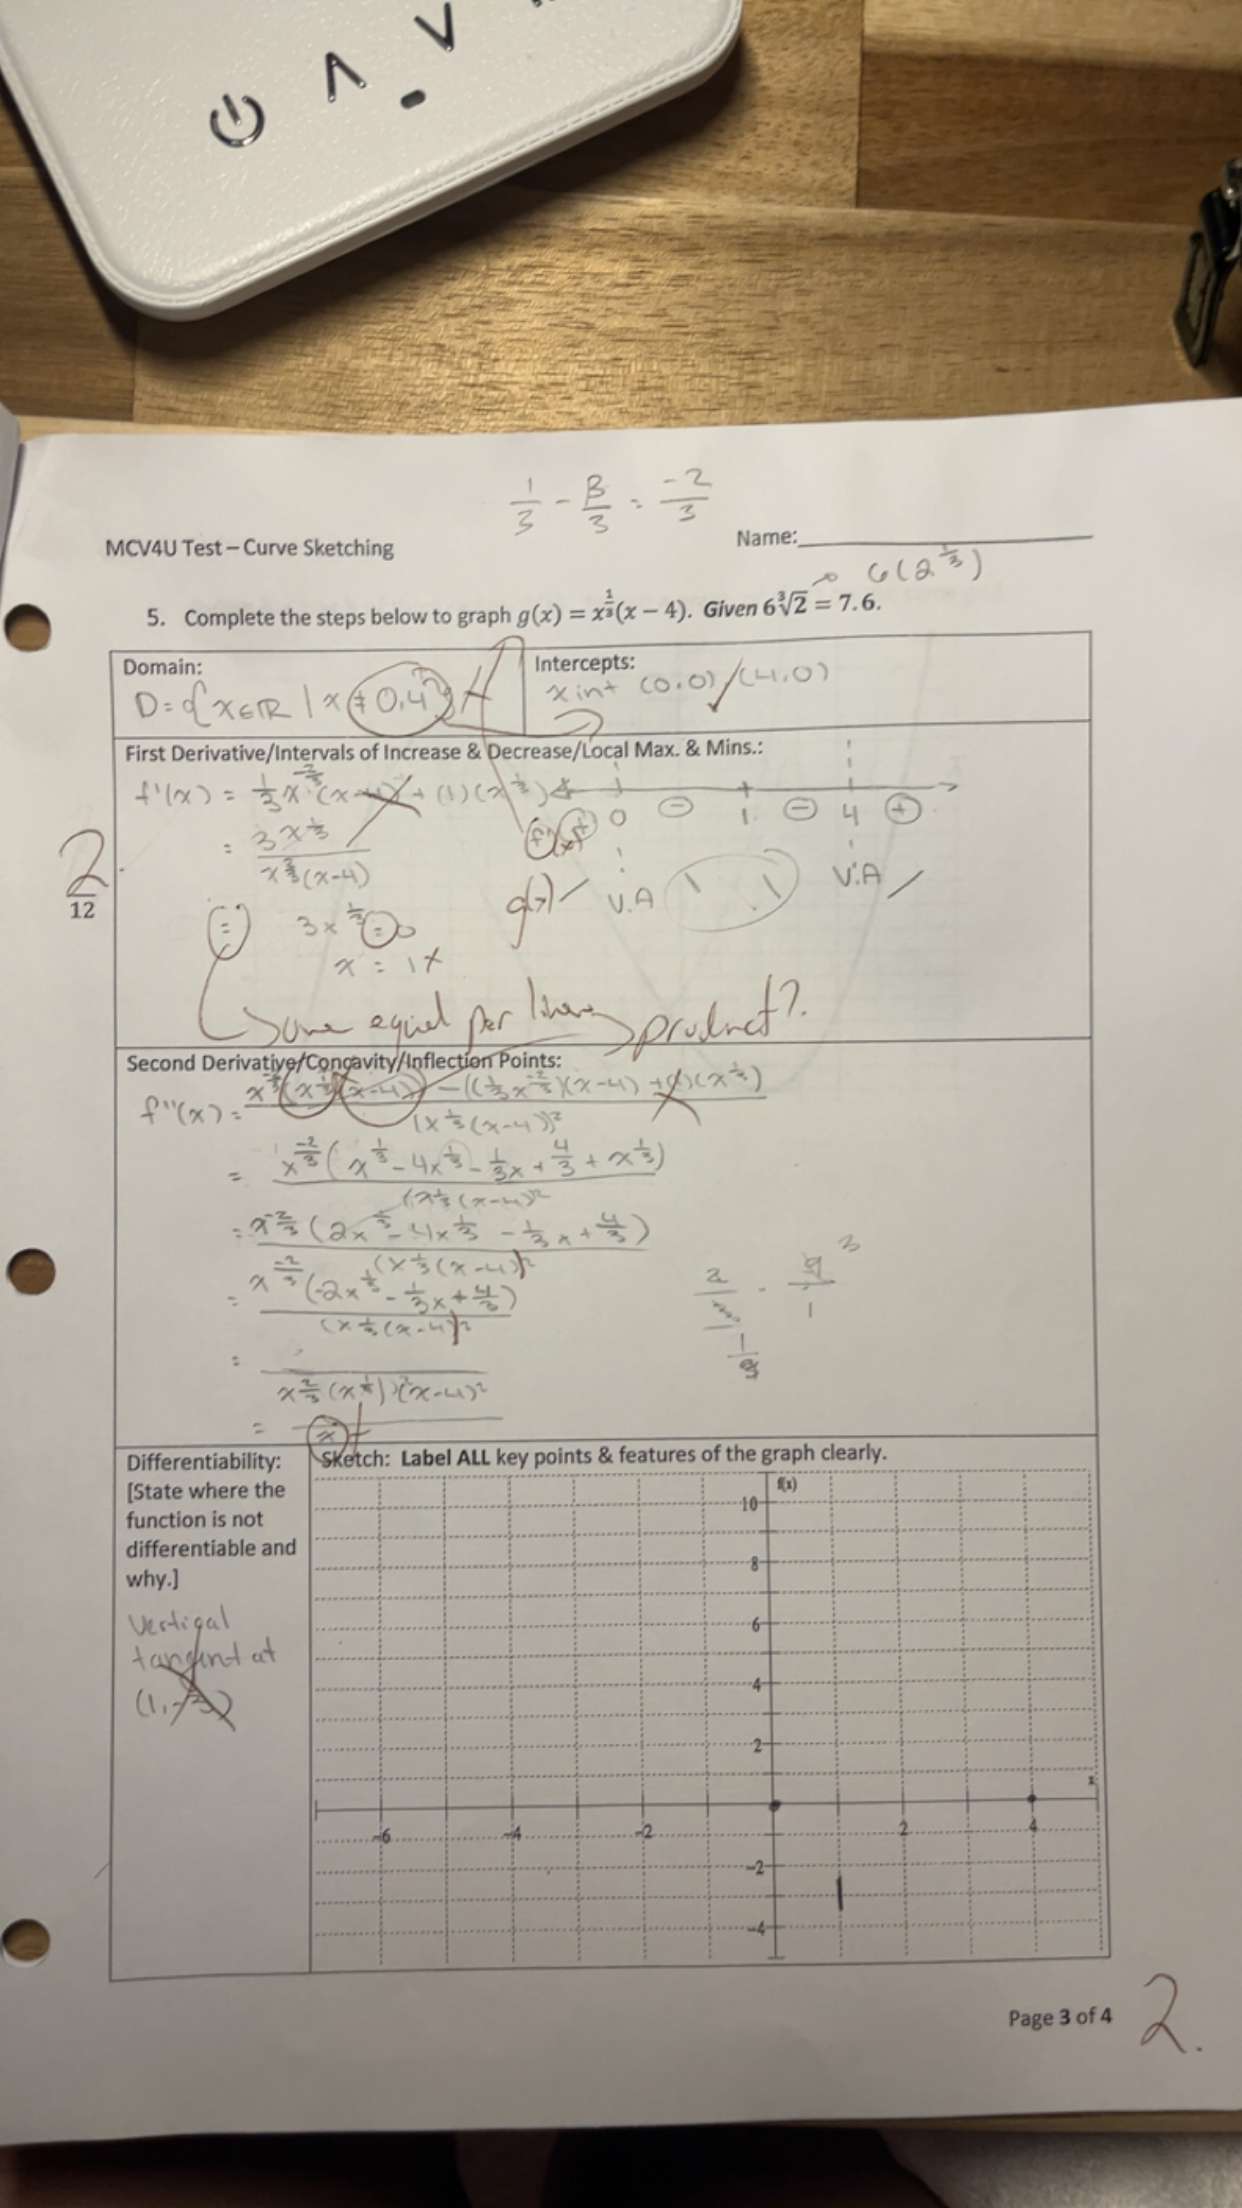 1/3 - 3/3 = -2/3
MCV4U Test – Curve Sketching
Name:
6(2^1/3)
5. Complete the steps below to graph g(x) = x^1/3(x − 4). Given 6∛2 = 7.6.
Domain:
D = {x∈R | x ≠ 0,4}
Intercepts:
x int (0,0) (4,0)
First Derivative/Intervals of Increase & Decrease/Local Max. & Mins.:
f'(x) = 1/3 x^-2/3 (x-4) + (1)(x^1/3)
0 - 1 - 4 +
= 3x^1/3 / x^2/3(x-4)
g(x) V.A V.A
2/12
= 3x^1/3 = 0
x = 1
Some equal per line product?
Second Derivative/Concavity/Inflection Points:
f''(x) = x^-2/3(x^1/3)(x-4) - ((1/3x^-2/3)(x-4) + (1)(x^1/3) / (x^1/3(x-4))^2
= x^-2/3(x^1/3 - 4x^1/3 - 1/3x + 4/3 + x^1/3) / (x^1/3(x-4)^2
= x^-2/3(2x^1/3 - 4x^1/3 - 1/3x + 4/3) / (x^1/3(x-4))^2
= x^-2/3(-2x^1/3 - 1/3x + 4/3) / (x^1/3(x-4))^2
=
=
Differentiability:
[State where the
function is not
differentiable and
why.]
Vertical
tangent at
Sketch: Label ALL key points & features of the graph clearly.
f(x)
10
8
6
4
2
x
-6 -4 -2 2 4
-2
-4
Page 3 of 4
2.